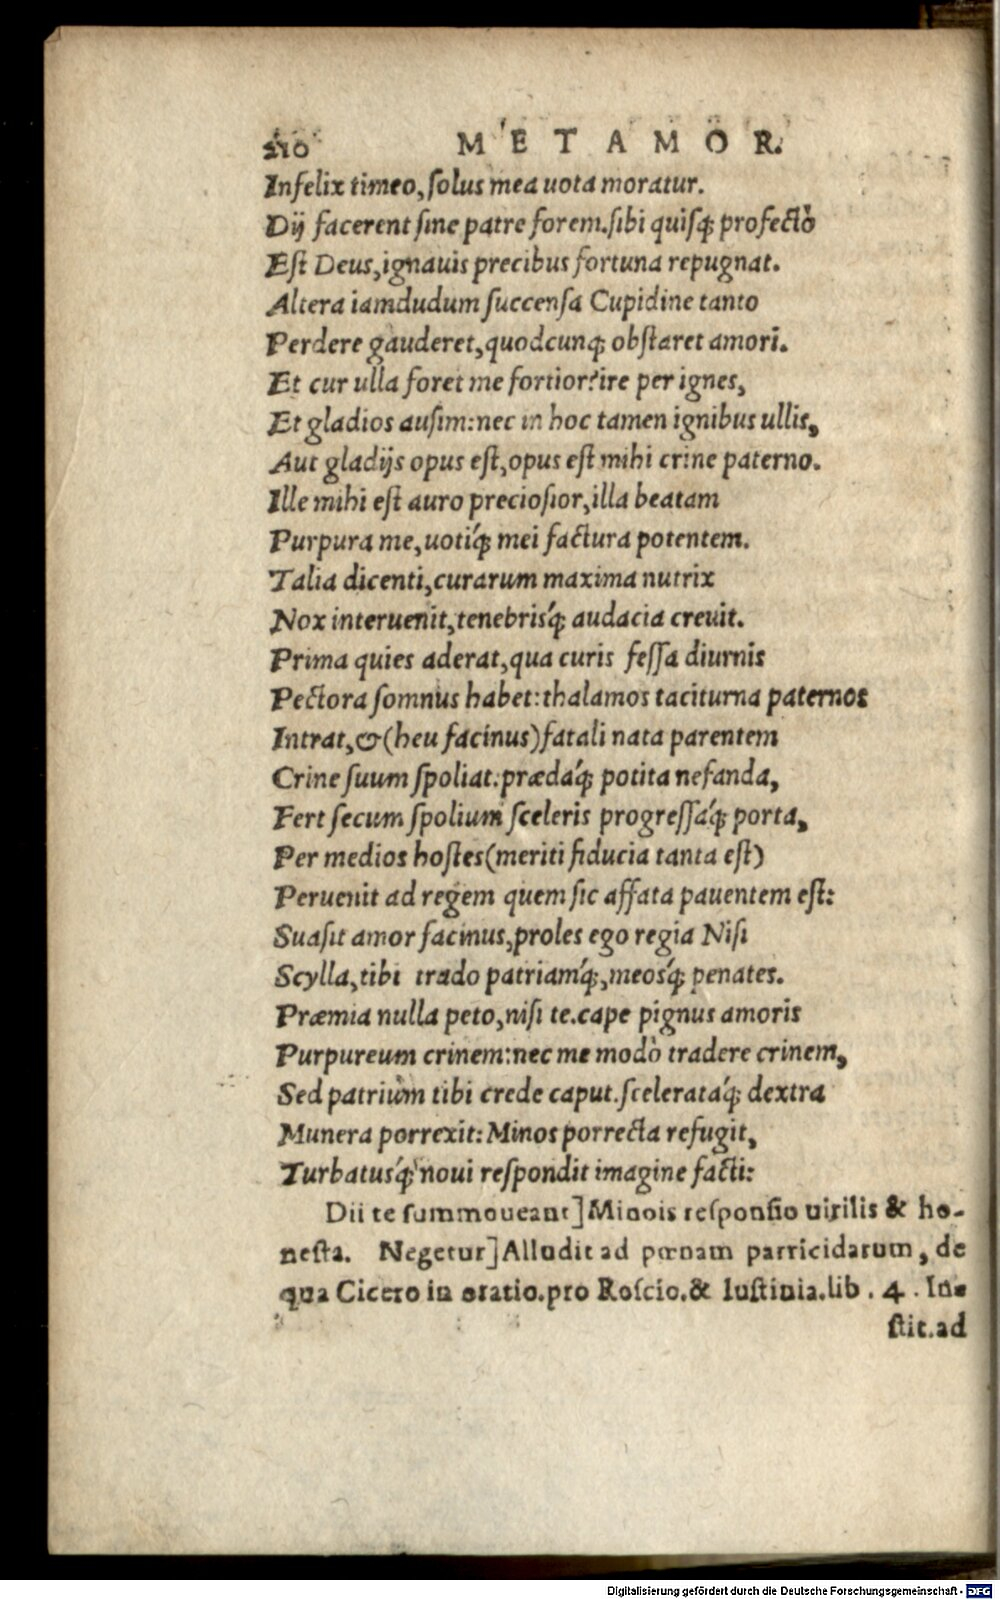 210 METAMOR.
Infelix timeo, ſolus mea uota moratur.
Dij facerent ſine patre forem. ſibi quiſq; profectò
Eſt Deus, ignauis precibus fortuna repugnat.
Altera iamdudum ſuccenſa Cupidine tanto
Perdere gauderet, quodcunq; obſtaret amori.
Et cur ulla foret me fortior? ire per ignes,
Et gladios auſim: nec in hoc tamen ignibus ullis,
Aut gladijs opus eſt, opus eſt mihi crine paterno.
Ille mihi eſt auro precioſior, illa beatam
Purpura me, uotiq́; mei factura potentem.
Talia dicenti, curarum maxima nutrix
Nox interuenit, tenebrisq́; audacia creuit.
Prima quies aderat, qua curis feſſa diurnis
Pectora ſomnus habet: thalamos taciturna paternos
Intrat, & (heu facinus) fatali nata parentem
Crine ſuum ſpoliat. prædaq́; potita nefanda,
Fert ſecum ſpolium ſceleris progreſſaq́; porta,
Per medios hoſtes (meriti fiducia tanta eſt)
Peruenit ad regem quem ſic affata pauentem eſt:
Suaſit amor facinus, proles ego regia Niſi
Scylla, tibi trado patriamq́;, meosq́; penates.
Præmia nulla peto, niſi te. cape pignus amoris
Purpureum crinem: nec me modò tradere crinem,
Sed patrium tibi crede caput. ſcelerataq́; dextra
Munera porrexit: Minos porrecta refugit,
Turbatusq́; noui reſpondit imagine facti:
Dii te ſummoueant] Minois reſponſio uirilis & ho-
neſta. Negetur] Alludit ad pœnam parricidarum, de
qua Cicero in oratio. pro Roſcio. & Iuſtinia. lib. 4. In-
ſtit. ad
Digitalisierung gefördert durch die Deutsche Forschungsgemeinschaft - DFG